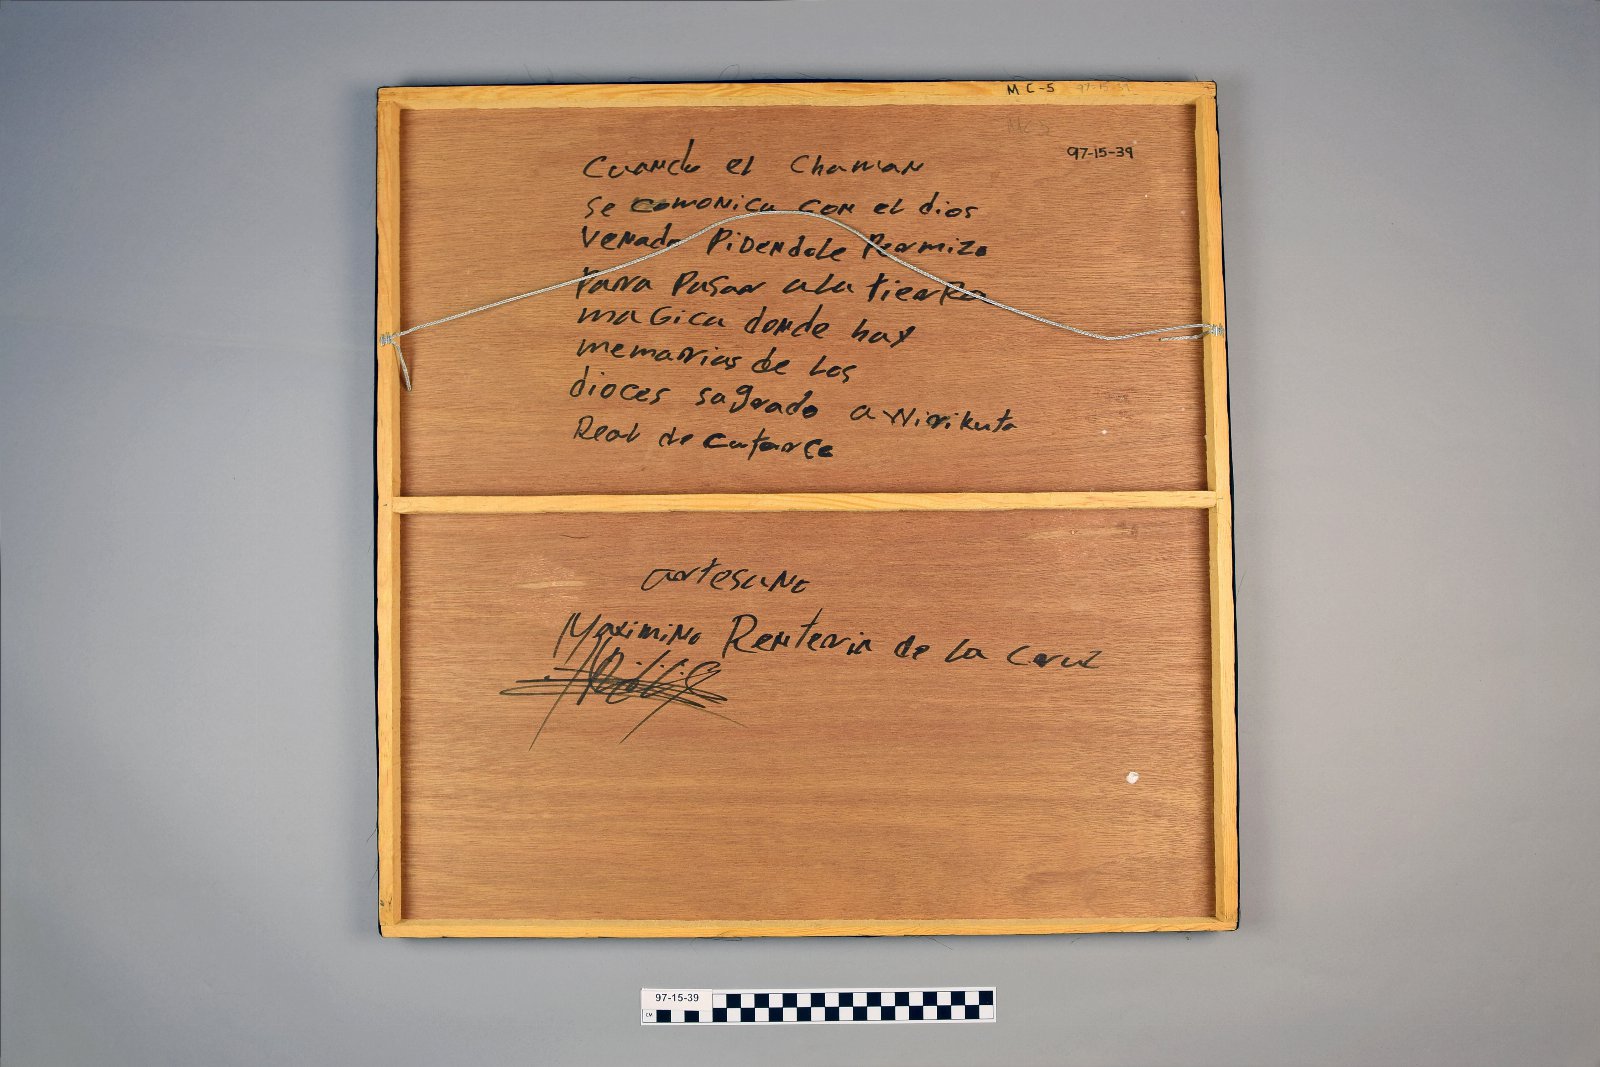 MC-5 97-15-39
MC 5
97-15-39
Cuando el Chaman
se comonica con el dios
Venado Pidendole Permizo
Para Pasar a la tierra
magica donde hay
memorias de los
dioces sagrado a Wirikuta
Real de Catorce
artesano
Maximino Renteria de la Cruz
97-15-39
CM